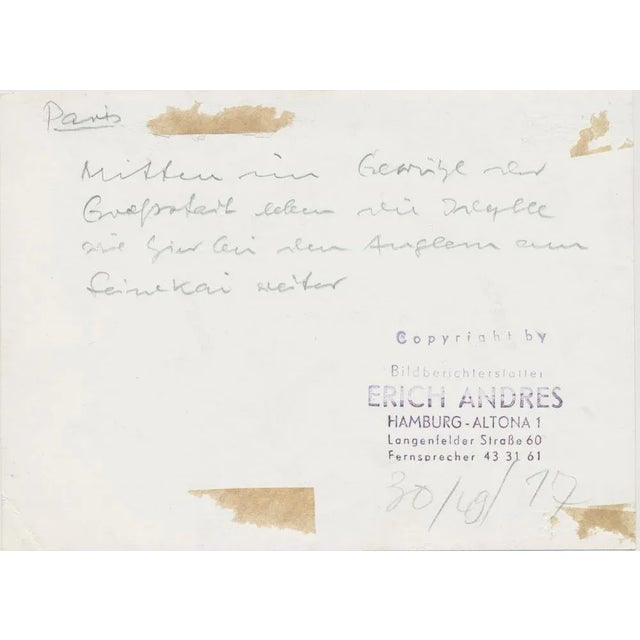 Paris
Mitten im Gewühl der
Großstadt leben die Idylle
wie hier bei den Anglern am
Seinekai weiter
Copyright by
Bildberichterstatter
ERICH ANDRES
HAMBURG-ALTONA 1
Langenfelder Straße 60
Fernsprecher 43 31 61
30/49/17